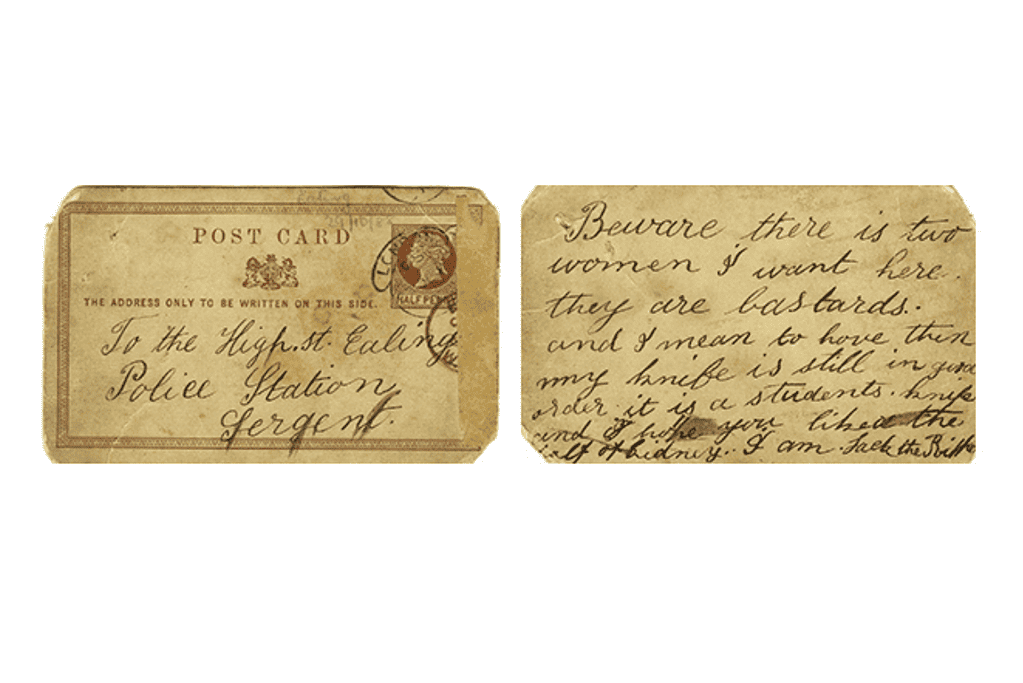 Ealing
POST CARD
HALF PEN
THE ADDRESS ONLY TO BE WRITTEN ON THIS SIDE.
To the High.st. Ealing
Police Station
Sergent.
Beware there is two
women I want here.
they are bastards.
and I mean to hove them
my knife is still in good
order it is a students knife
and I hope you liked the
half of kidney. I am Jack the Ripper